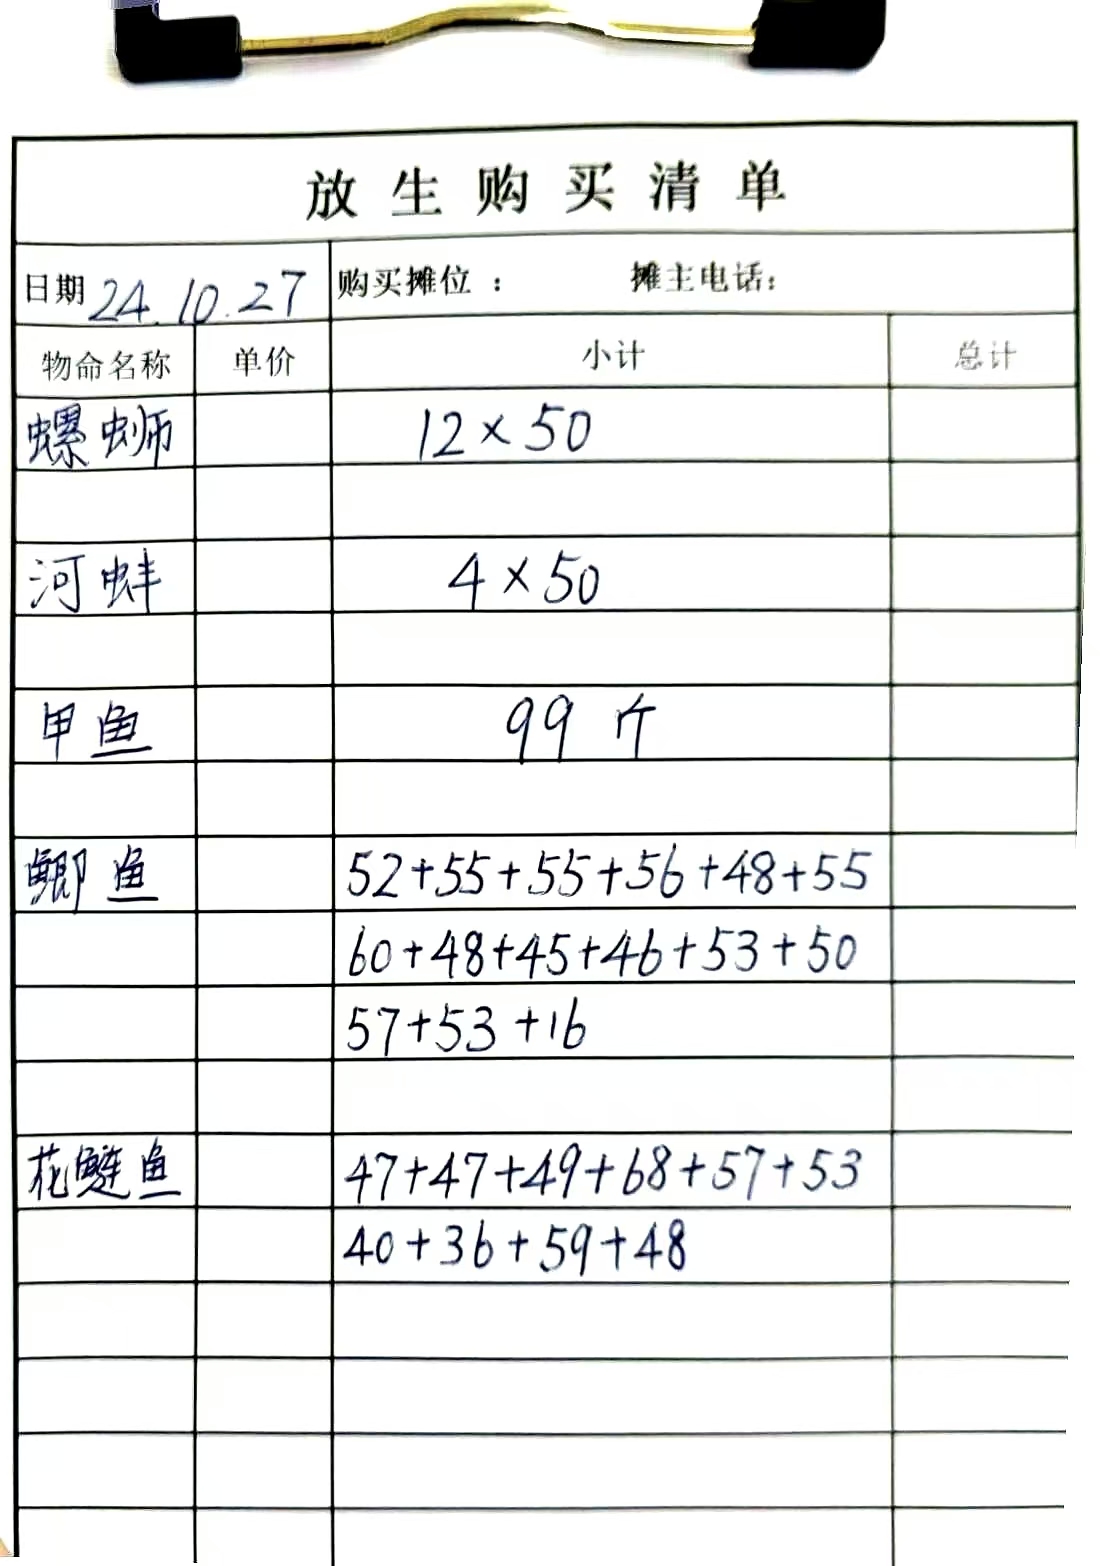 放生购买清单
日期 24.10.27 购买摊位： 摊主电话：
物命名称 单价 小计 总计
螺蛳 12×50
河蚌 4×50
甲鱼 99 个
鲫鱼 52+55+55+56+48+55
60+48+45+46+53+50
57+53+16
花鲢鱼 47+47+49+68+57+53
40+36+59+48